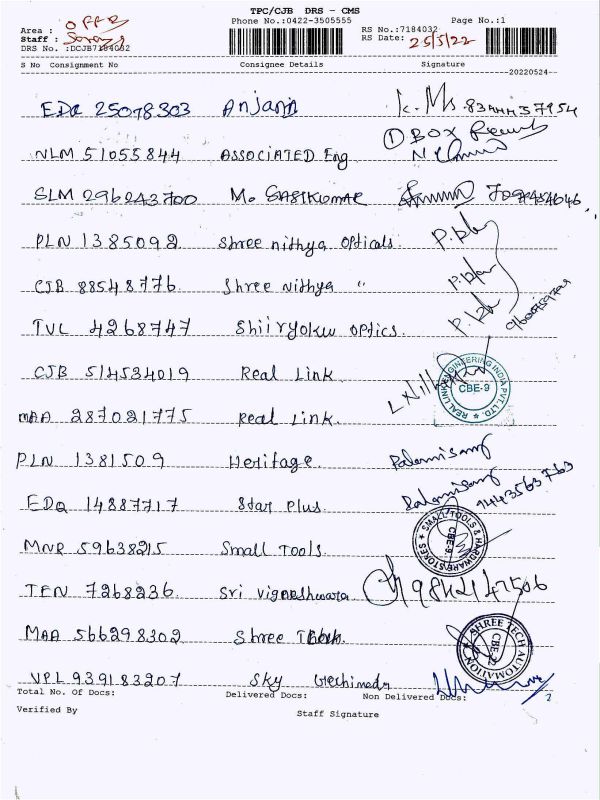 TPC/CJB DRS - CMS
Area : OFFB Phone No.:0422-3505555 Page No.:1
Staff : RS No.:7184032
DRS No. :DCJB7184032 RS Date: 25/5/22
S No Consignment No Consignee Details Signature
20220524
EDQ 25078303 Anjani
① BOX
NLM 51055844 ASSOCIATED Eng
SLM 296243700 M. SASIKUMAR
PLN 1385092 Shree nithya Opticals.
CJB 88548776 Shree Nithya "
TVL 4268747 Shiiryoku Optics.
CJB 514534019 Real Link
REAL LINK ENGINEERING INDIA PVT. LTD. CBE-9
MAA 287021775 Real Link.
PLN 1381509 Heritage. Palanisamy
EDQ 14887717 Star Plus. Palanisamy 9443563763
MNR 59638215 Small Tools.
SMALL TOOLS & HARDWARE STORES CBE-9.
TEN 7268236 Sri Vigneshwara 9842147506
MAA 566298302 Shree Tech.
SHREE TECH AUTOMATION CBE-22
VPL 939183207 Sky
Total No. Of Docs: Delivered Docs: Non Delivered Docs: 2
Verified By Staff Signature